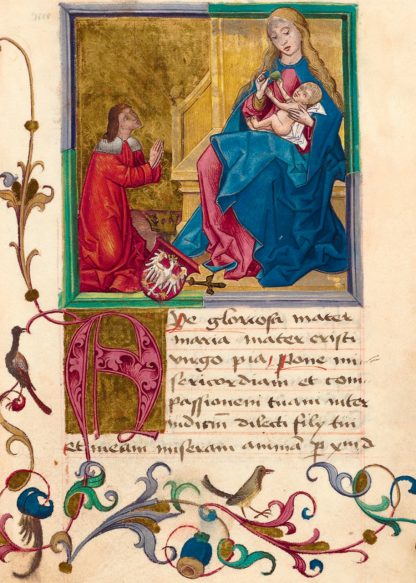 Ave gloriosa mater
maria mater cristi
virgo pia, pone mi⸗
sericordiam et com
passionem tuam inter
iudicium dilecti filij tui
et meam miseram animam p